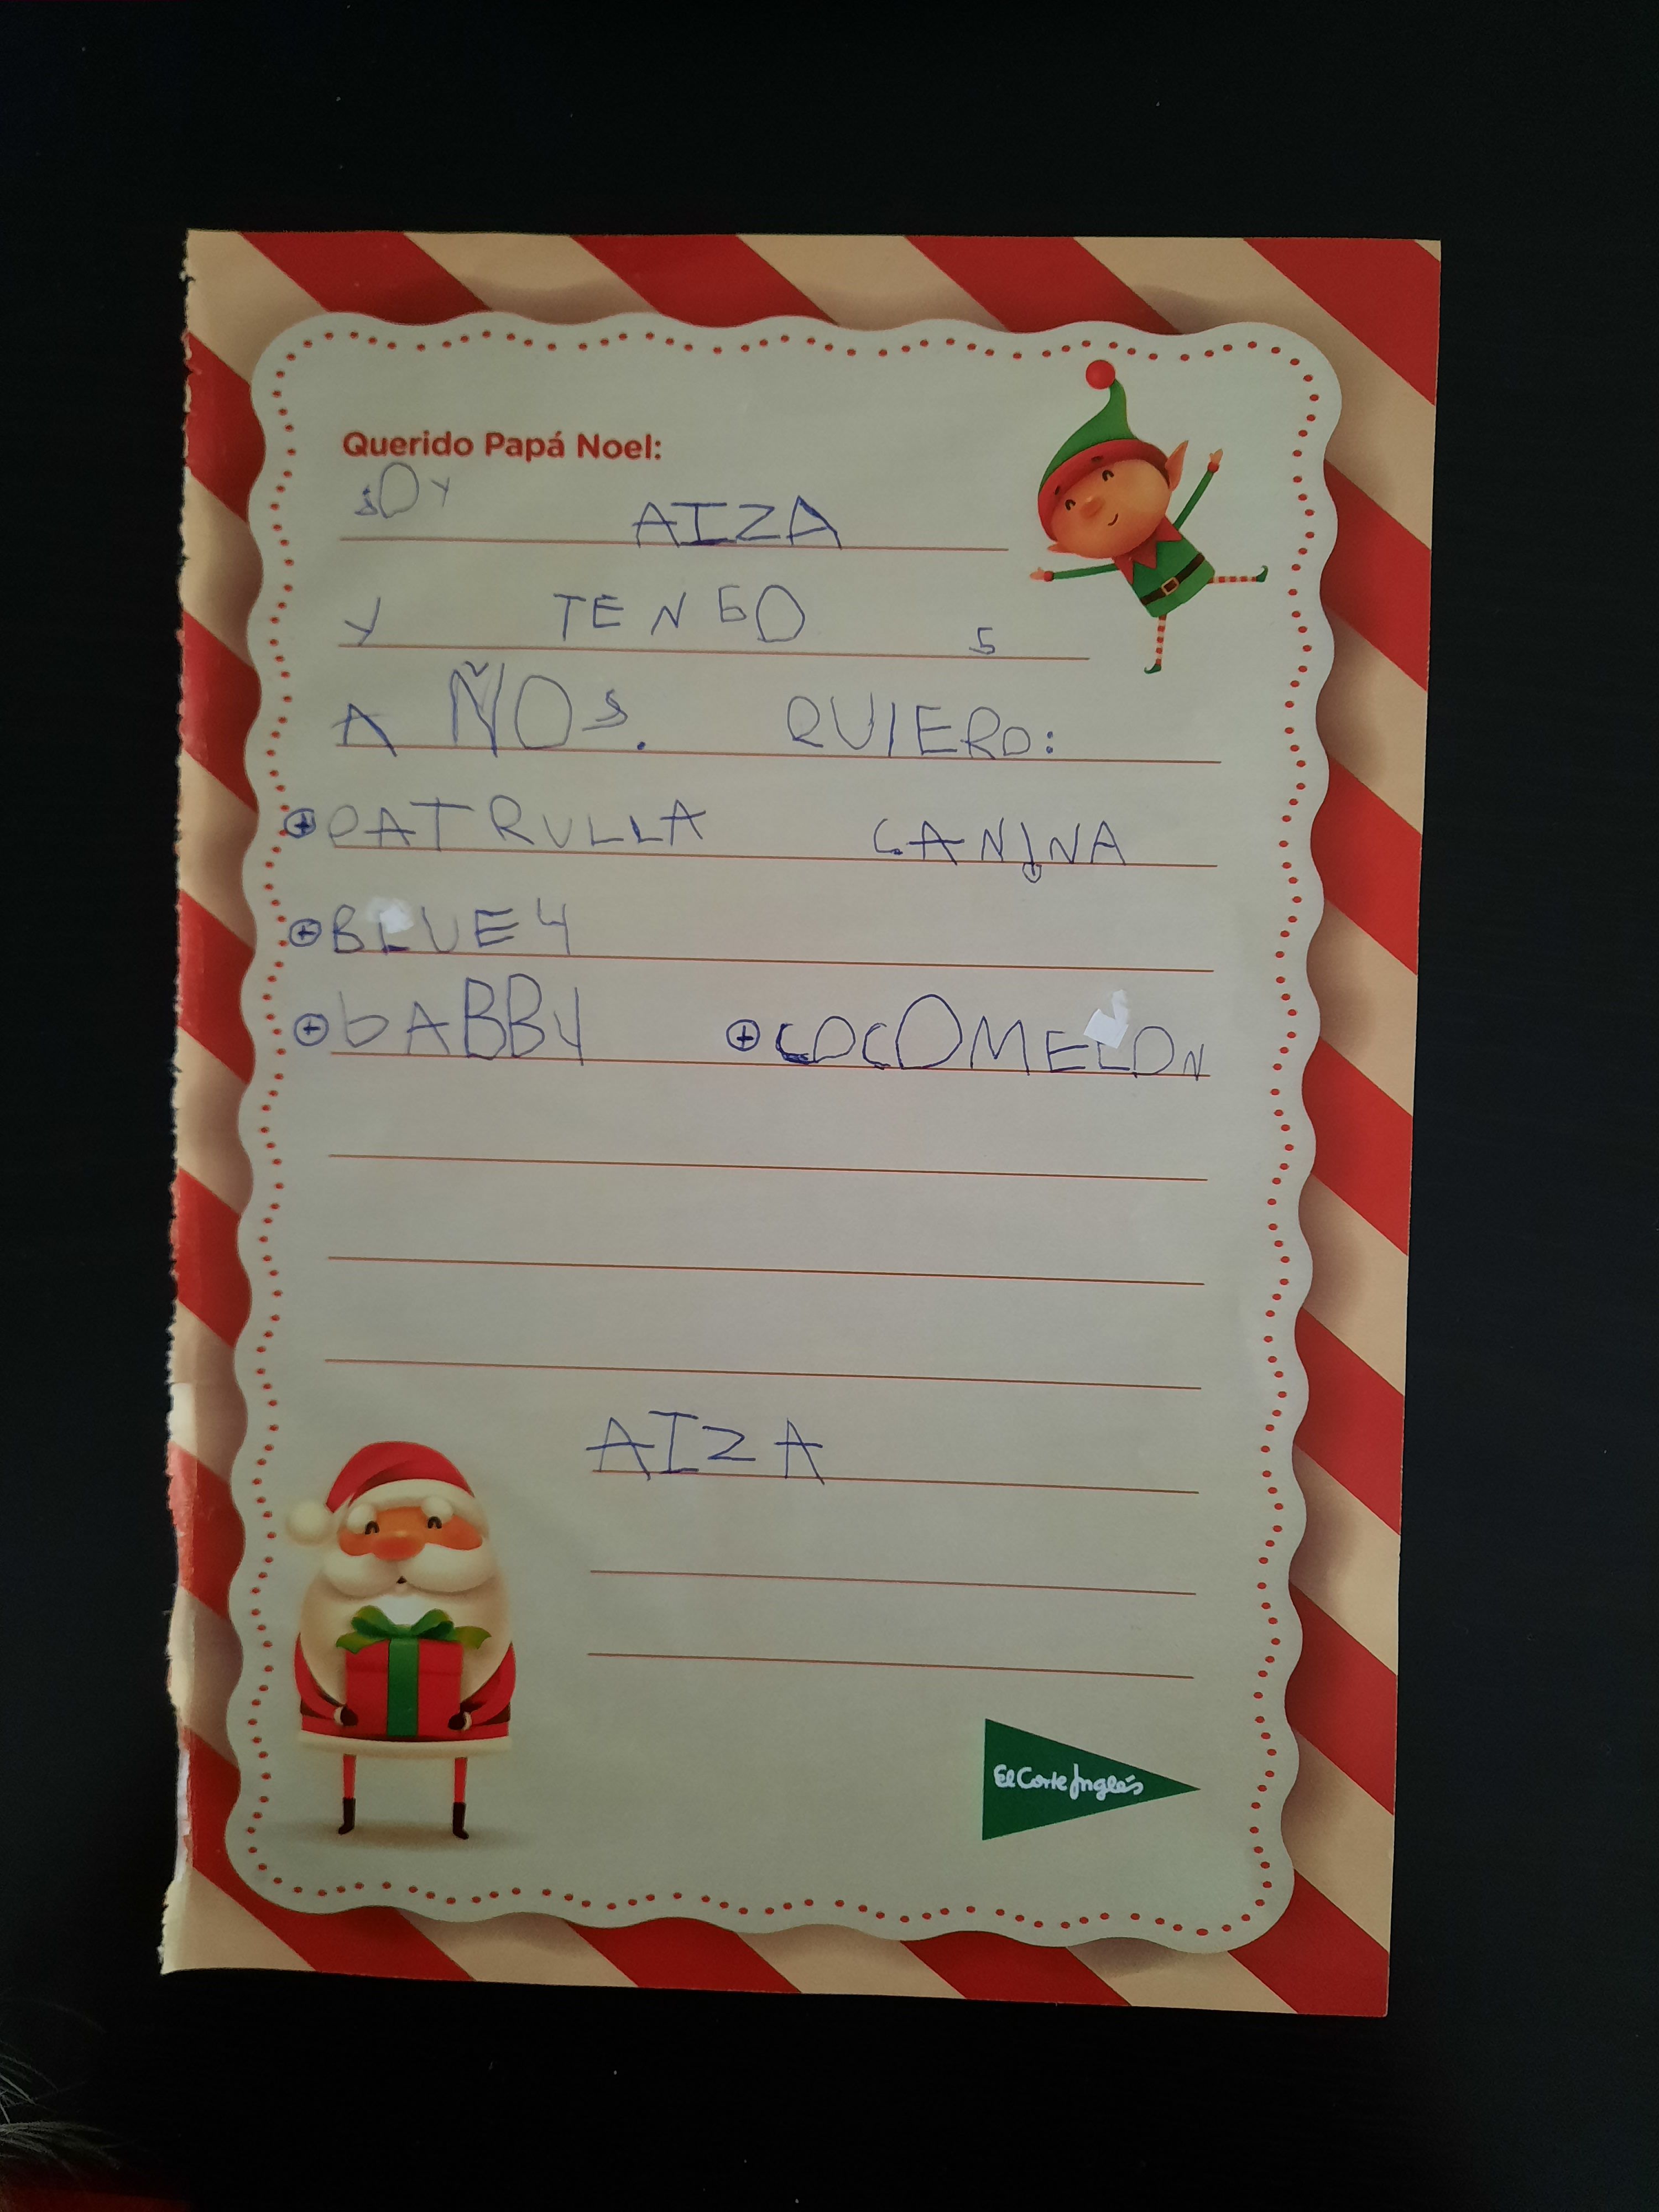 Querido Papá Noel:
SOY AIZA
Y TENGO 5
AÑOS. QUIERO:
PATRULLA CANINA
BLUEY
bABBY COCOMELON
AIZA
El Corte Inglés